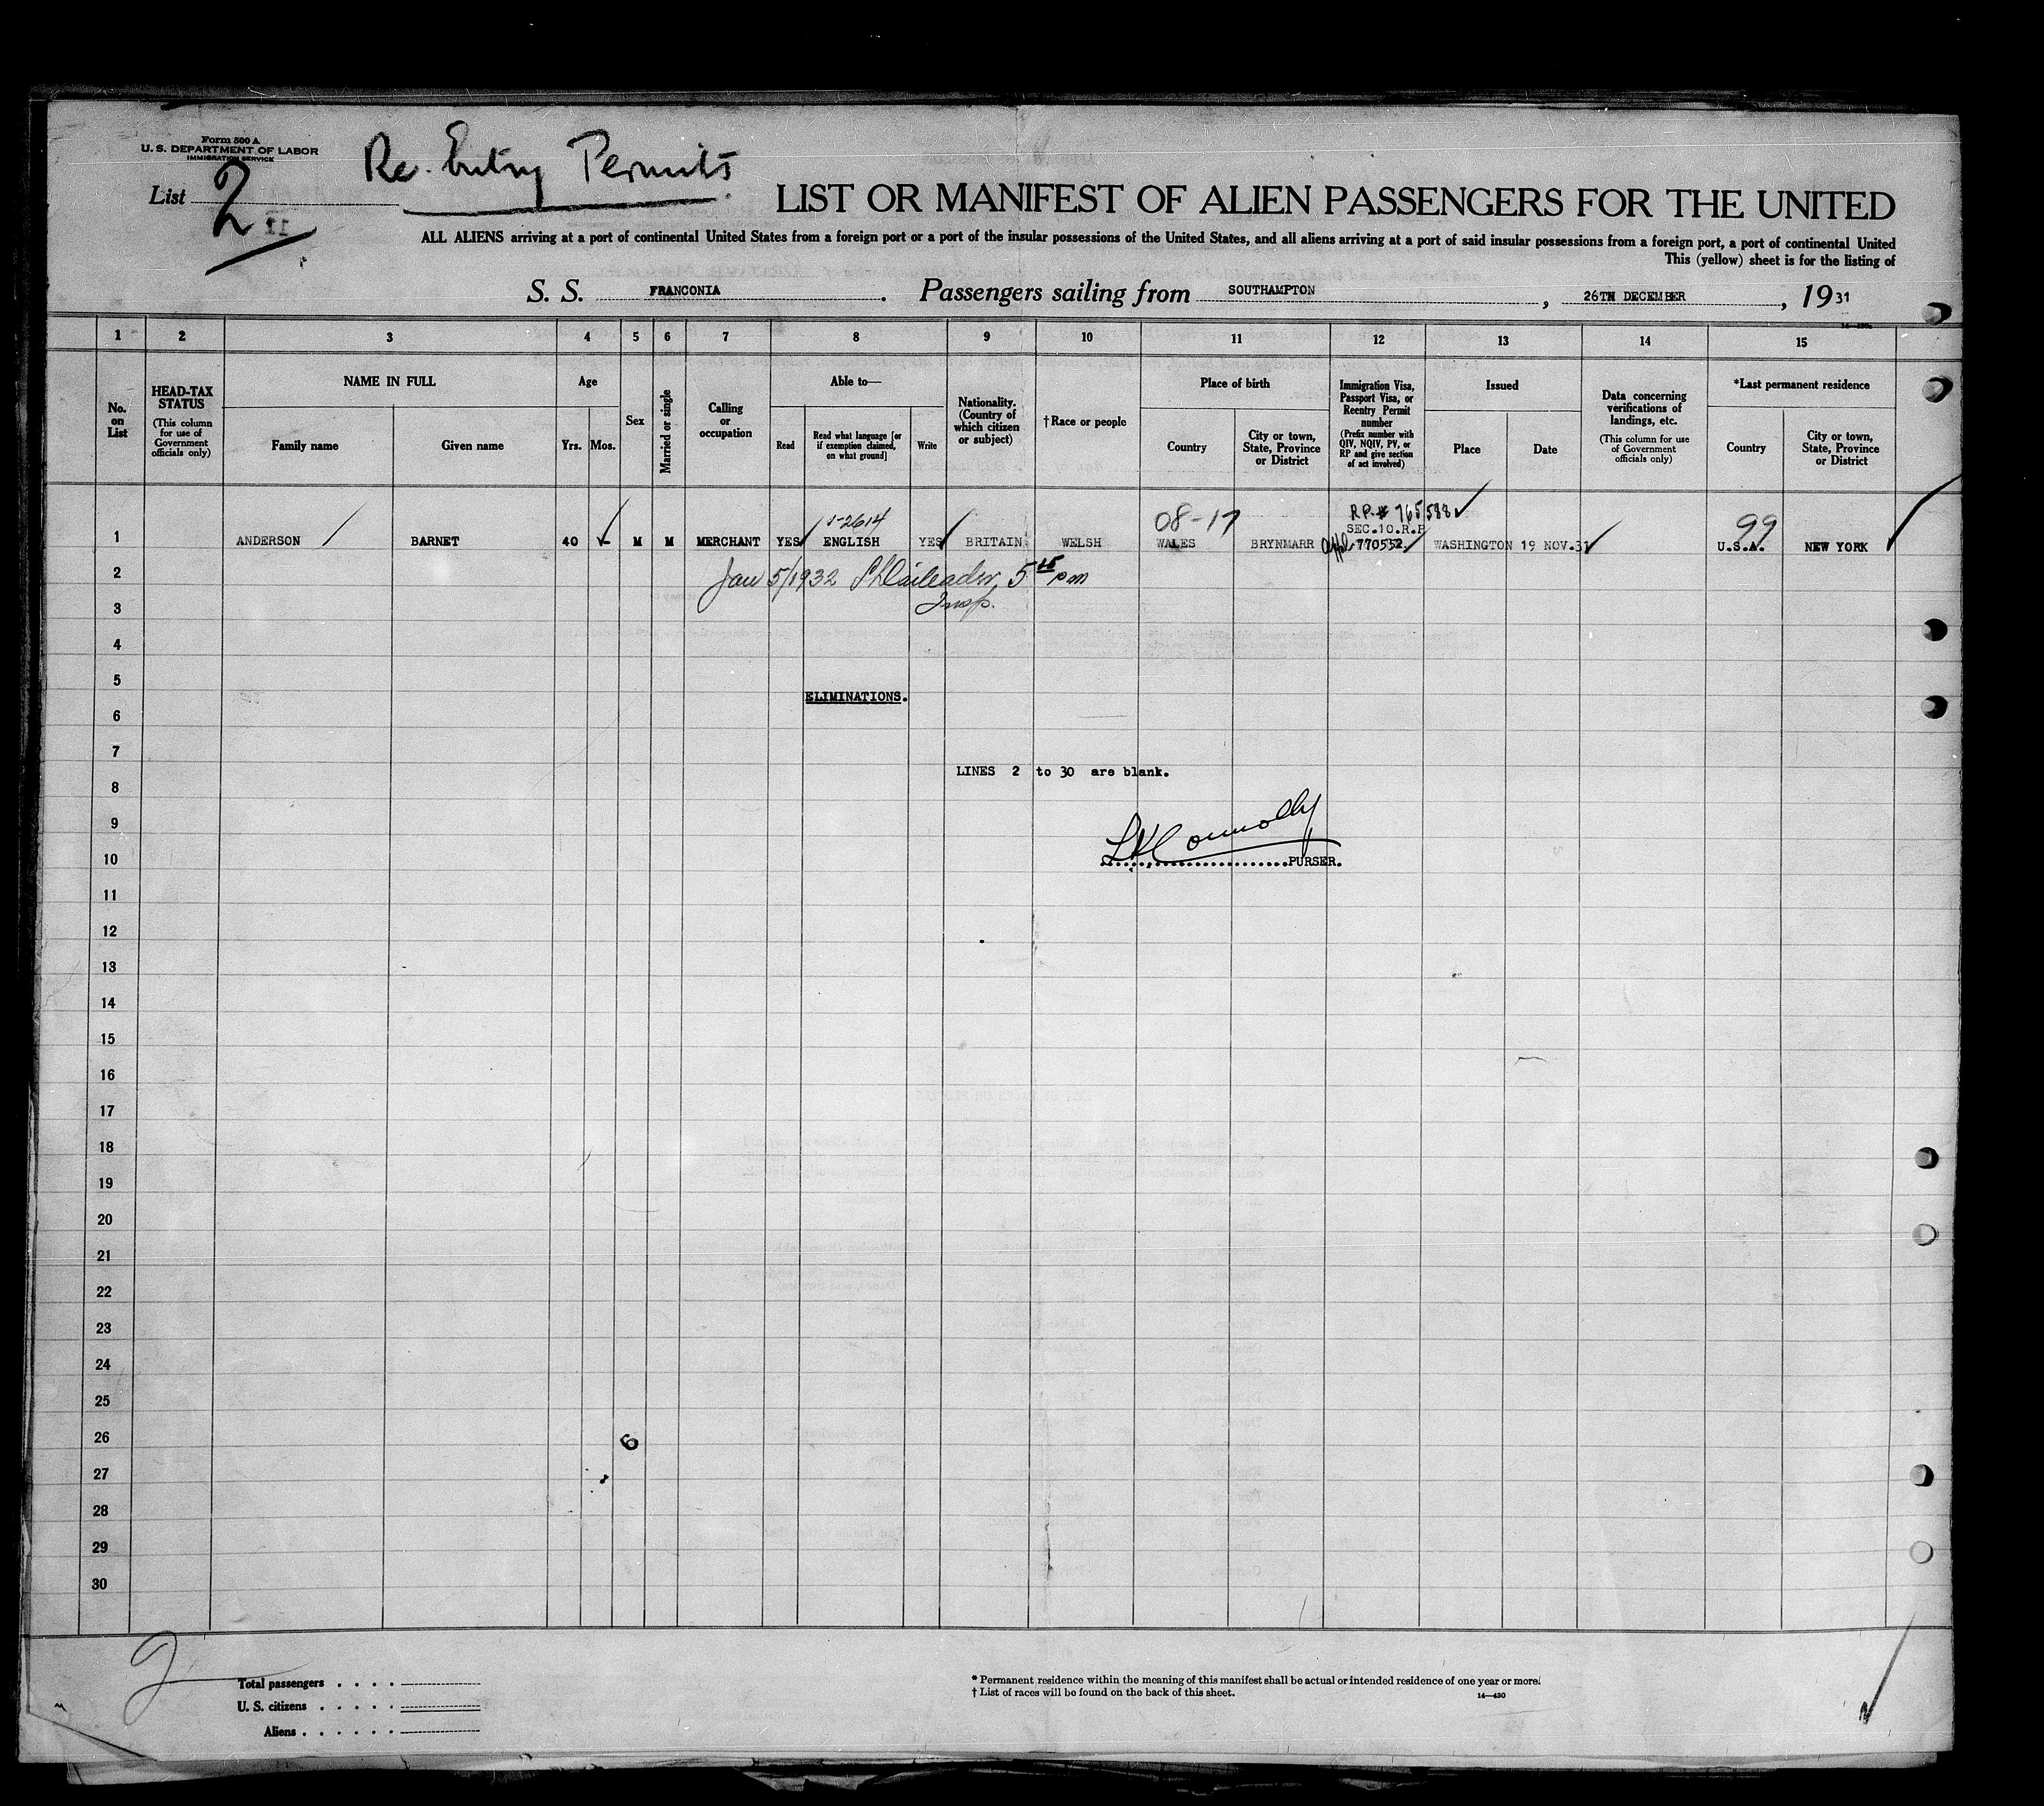 Form 500 A
U. S. DEPARTMENT OF LABOR
IMMIGRATION SERVICE
Re. Entry Permits
List 2
LIST OR MANIFEST OF ALIEN PASSENGERS FOR THE UNITED
ALL ALIENS arriving at a port of continental United States from a foreign port or a port of the insular possessions of the United States, and all aliens arriving at a port of said insular possessions from a foreign port, a port of continental United
This (yellow) sheet is for the listing of
S. S. FRANCONIA. Passengers sailing from SOUTHAMPTON, 26TH DECEMBER, 1931
1 2 3 4 5 6 7 8 9 10 11 12 13 14 15
No. on List
HEAD-TAX STATUS
(This column for use of Government officials only)
NAME IN FULL
Family name
Given name
Age
Yrs.
Mos.
Sex
Married or single
Calling or occupation
Able to—
Read
Read what language [or if exemption claimed, on what ground]
Write
Nationality. (Country of which citizen or subject)
† Race or people
Place of birth
Country
City or town, State, Province or District
Immigration Visa, Passport Visa, or Reentry Permit number
(Prefix number with QIV, NQIV, PV, or RP and give section of act involved)
Issued
Place
Date
Data concerning verifications of landings, etc.
(This column for use of Government officials only)
*Last permanent residence
Country
City or town, State, Province or District
1-2614 08-17 RP.# 765588 99
SEC.10.R.P
1 ANDERSON BARNET 40 M M MERCHANT YES ENGLISH YES BRITAIN WELSH WALES BRYNMARR 770552 WASHINGTON 19 NOV.31 U.S.A. NEW YORK
2 Jan 5/1932 5 15 pm
3 Insp.
4
5
ELIMINATIONS.
6
7
LINES 2 to 30 are blank.
8
9
Connolly
10 PURSER.
11
12
13
14
15
16
17
18
19
20
21
22
23
24
25
26 6
27
28
29
30
2
Total passengers . . . .
U. S. citizens . . . . .
Aliens . . . . . .
* Permanent residence within the meaning of this manifest shall be actual or intended residence of one year or more.
† List of races will be found on the back of this sheet.
14—430